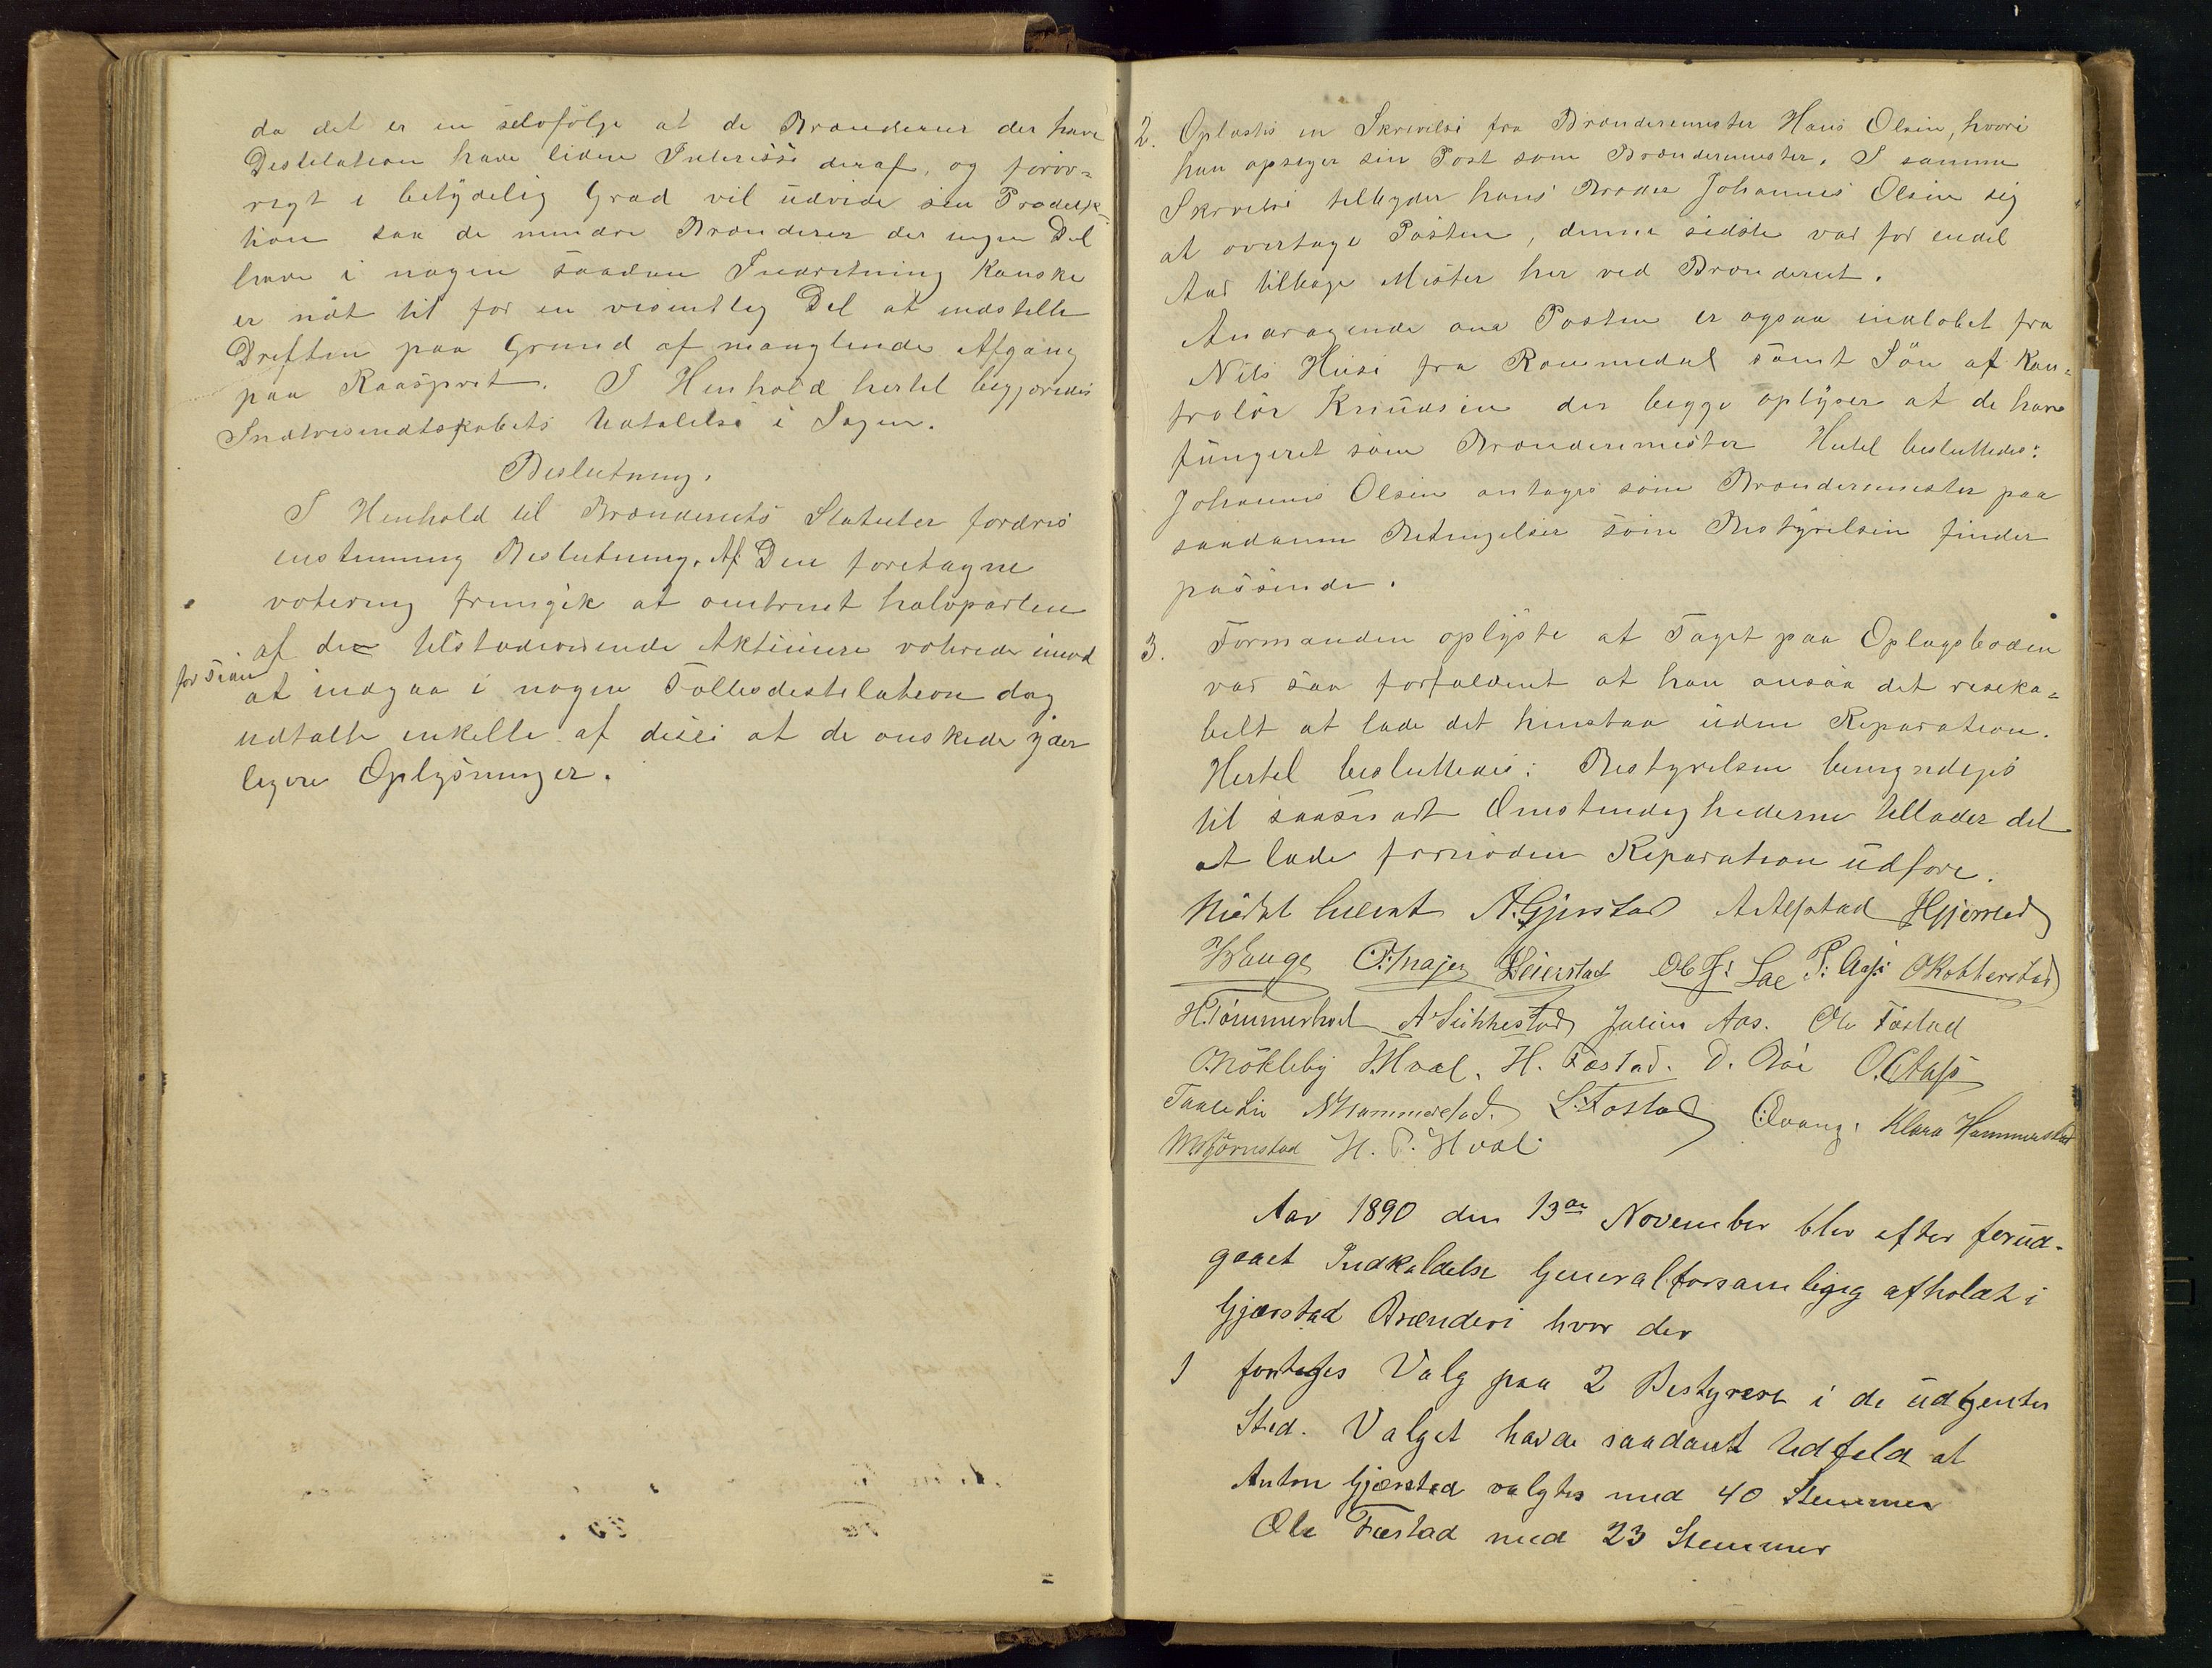 da det er en selvfölge at de Brænderier der have
Destilation have liden Interesse deraf, og forøv=
rigt i betydelig Grad vil udvide sin Produk
tion saa de mindre Brænderier der ingen Del
have i nogen saadan Indretning Kanske
er nöt til for en visentlig Del at indstille
Driften paa Grund af manglende Afgang
paa Raasprit. I Henhold hertil begjæredes
Indtresendtskabets Udtalelse i Sagen.
Beslutning.
I Henhold til Brænderiets Statuter fordres
enstemmig Beslutning. Af Den foretagne
votering fremgik at omtrent halvparten
af de tilstædeværende Aktieiere voterede imod
for Tiden
at indgaa i nogen Fællesdestilation dog
udtalte enkelte af disse at de önskede yder
ligere Oplysninger.
2. Oplæstes en Skrivelse fra Brænderimester Hans Olsen, hvori
han opsiger sin Post som Brænderimester. I samme
Skrivelse tilbyder hans Broder Johannes Olsen sig
at overtage Posten, denne sidste var for endel
Aar tilbage Mester her ved Brænderiet.
Anaragende om Posten er ogsaa indlöbet fra
Nils Huse fra Rommedal samt Sön af Kon=
trolör Knudsen der begge oplyser at de have
fungeret som Brænderimester Hertil besluttedes:
Johannes Olsen antages som Brænderimester paa
saadanne Betingelser som Bestyrelsen finder
passende.
3. Formanden oplyste at Taget paa Oplagsboden
var saa forfaldent at han ansaa det riseka=
belt at lade det henstaa uden Reparation.
Hertil besluttedes: Bestyrelsen bemyndiges
til saasnart Omstendighederne tillader det
at lade fornöden Reparation udföre.
A. Gjerstad A Alfstad HGjerstad
Hauge Seierstad Ole J: Lae P: Aas OKobberstad
H. Tömmerhol A Sukkestad Julius Aas. Ole Fæstad
O.Nökleby Hval. H. Fæstad. D. Röi O. C Aas
Taale Lie NHammerstad. L. Fæstad Qvang. Klara Hammerstad
MBjörnstad H. P. Hval
Aar 1890 den 13de November blev efter forud-
gaaet Indkaldelse Generalforsamligng afholdt i
Gjærstad Brænderi hvor der
1 foretoges Valg paa 2 Bestyrere i de udtjentes
Sted. Valget havde saadant Udfeld at
Anton Gjærstad valgtes med 40 Stemmer
Ole Fæstad med 23 Stemmer